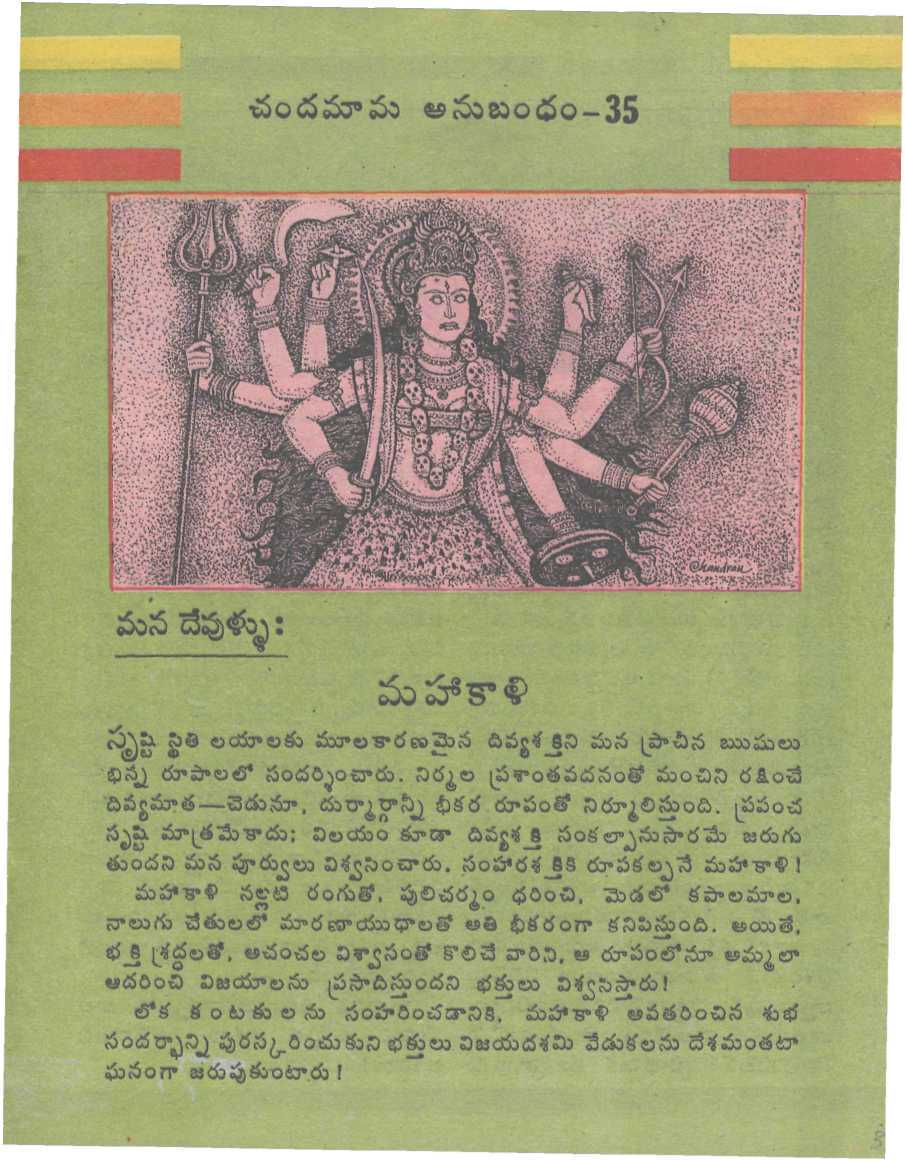 చందమామ అనుబంధం-35
Chandran
మన దేవుళ్ళు:
మహాకాళి
సృష్టి స్థితి లయాలకు మూలకారణమైన దివ్యశక్తిని మన ప్రాచీన ఋషులు
భిన్న రూపాలలో సందర్శించారు. నిర్మల ప్రశాంతవదనంతో మంచిని రక్షించే
దివ్యమాత—చెడునూ, దుర్మార్గాన్నీ భీకర రూపంతో నిర్మూలిస్తుంది. ప్రపంచ
సృష్టి మాత్రమేకాదు; విలయం కూడా దివ్యశక్తి సంకల్పానుసారమే జరుగు
తుందని మన పూర్వులు విశ్వసించారు. సంహారశక్తికి రూపకల్పనే మహాకాళి!
మహాకాళి నల్లటి రంగుతో, పులిచర్మం ధరించి, మెడలో కపాలమాల,
నాలుగు చేతులలో మారణాయుధాలతో అతి భీకరంగా కనిపిస్తుంది. అయితే,
భక్తి శ్రద్ధలతో, అచంచల విశ్వాసంతో కొలిచే వారిని, ఆ రూపంలోనూ అమ్మలా
ఆదరించి విజయాలను ప్రసాదిస్తుందని భక్తులు విశ్వసిస్తారు!
లోక కంటకులను సంహరించడానికి, మహాకాళి అవతరించిన శుభ
సందర్భాన్ని పురస్కరించుకుని భక్తులు విజయదశమి వేడుకలను దేశమంతటా
ఘనంగా జరుపుకుంటారు!